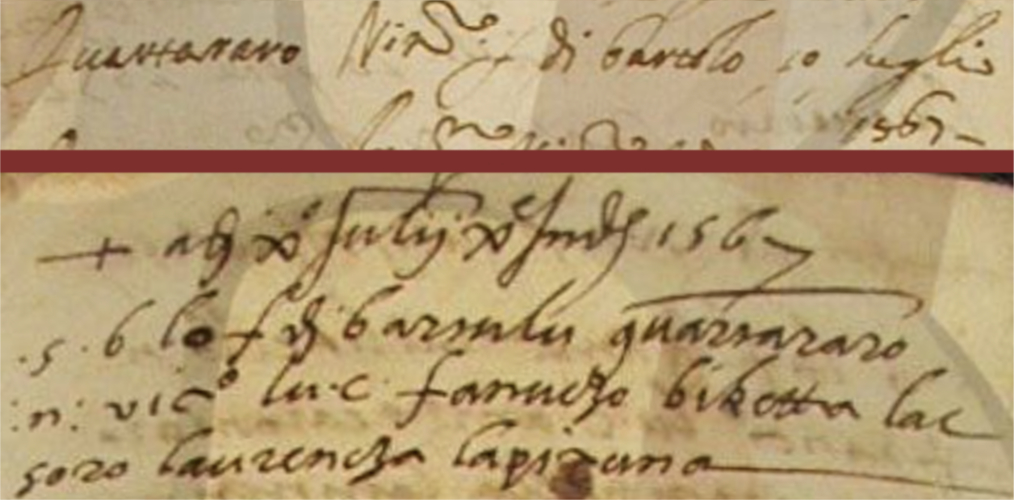 Quartararo Nic.º di bartolo 10 luglio
1567
+ adj xº Julij xº Inds 1567
.s. b lo f di bartulu quartararo
:n: vicº lu c. fanuczo biketta la c
soro laurencza lapituna